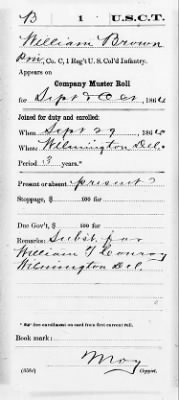 B 1 U.S.C.T.
William Brown
Priv., Co. C, 1 Reg't U. S. Col'd Infantry.
Appears on
Company Muster Roll
for Sept & Oct, 1864
Joined for duty and enrolled:
When Sept 29, 1864
Where Wilmington Del.
Period 3 years.*
Present or absent Present
Stoppage, $ 100 for
Due Gov't, $ 100 for
Remarks: Subst. for
William T
Wilmington Del.
* See enrollment on card from first company roll.
Book mark:
May
(358c) Copyist.